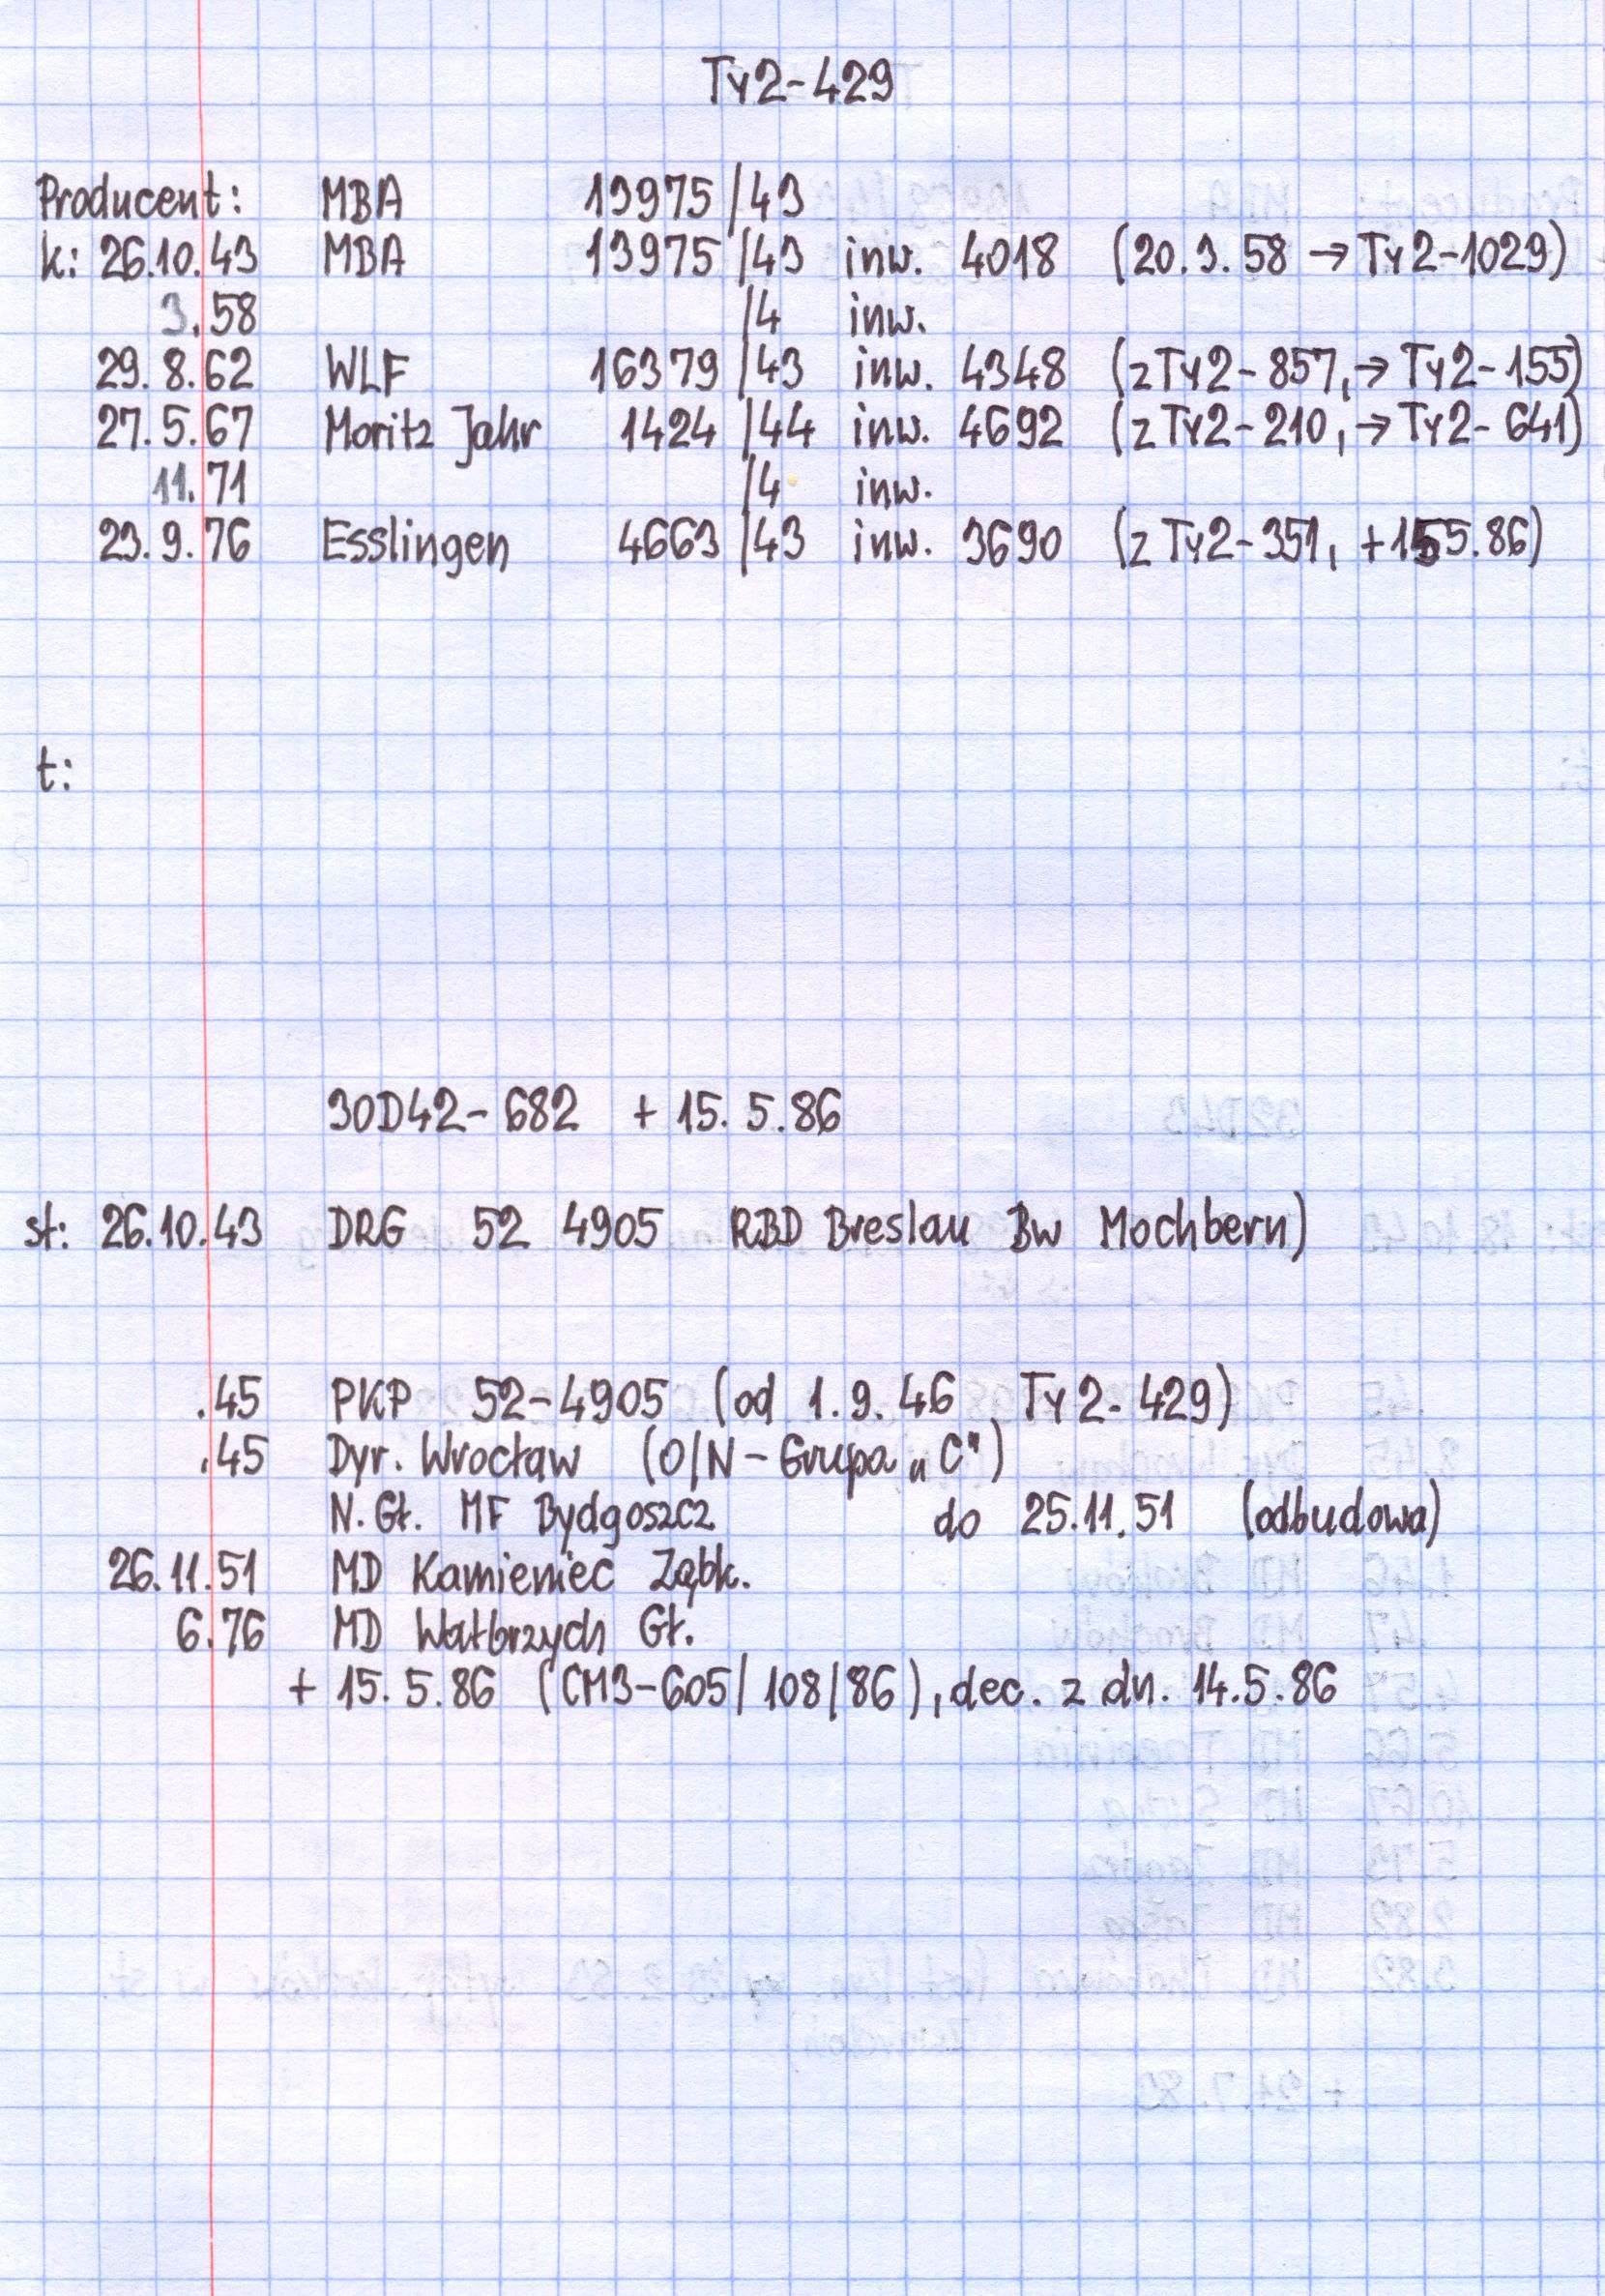 Ty2-429
Producent: MBA 13975/43
k: 26.10.43 MBA 13975/43 inw. 4018 (20.3.58 → Ty2-1029)
3.58 /4 inw.
29.8.62 WLF 16379/43 inw. 4348 (z Ty2-857, → Ty2-155)
27.5.67 Moritz Jahr 1424/44 inw. 4692 (z Ty2-210, → Ty2-641)
11.71 /4 inw.
23.9.76 Esslingen 4663/43 inw. 3690 (z Ty2-351, +15.5.86)
t:
30D42-682 + 15.5.86
st: 26.10.43 DRG 52 4905 RBD Breslau Bw Mochbern)
.45 PKP 52-4905 (od 1.9.46 Ty2-429)
.45 Dyr. Wrocław (O/N-Grupa „C")
N. Gł. MF Bydgoszcz do 25.11.51 (odbudowa)
26.11.51 MD Kamieniec Ząbk.
6.76 MD Wałbrzych Gł.
+ 15.5.86 (CM3-605/108/86), dec. z dn. 14.5.86